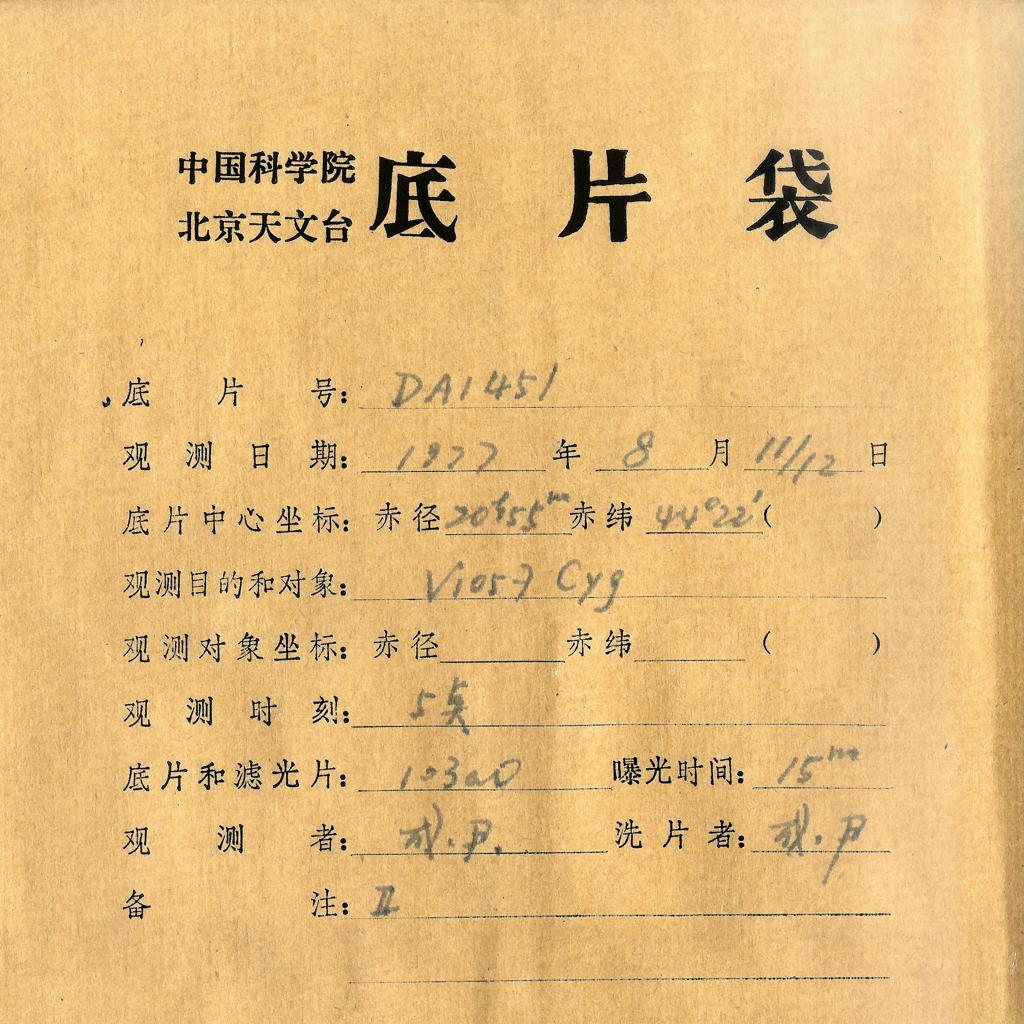 中国科学院
北京天文台
底片袋
底片号: DA1451
观测日期: 1977年8月11/12日
底片中心坐标: 赤径20h55m赤纬44°22′( )
观测目的和对象: V1057 Cyg
观测对象坐标: 赤径 赤纬 ( )
观测时刻: 5点
底片和滤光片: 103aO 曝光时间: 15m
观测者: 
洗片者: 
备注: II